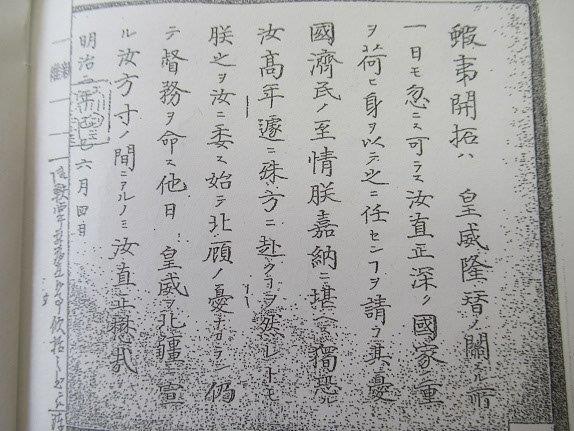 蝦夷開拓ハ 皇威隆替ノ關スル所
一日モ忽ニス可ラス汝直正深ク國家ノ重
ヲ荷ヒ身ヲ以テ之ニ任センヿヲ請フ其憂
國濟民ノ至情朕嘉納ニ堪ヘス獨恐ル
汝高年遽ニ殊方ニ赴クヿヲ然レトモ
朕之ヲ汝ニ委ス始テ北顧ノ憂ナカラン仍
テ督務ヲ命ス他日 皇威ヲ北疆ニ宣
ル汝方寸ノ間ニアルノミ汝直正懋哉
明治二年己巳六月四日